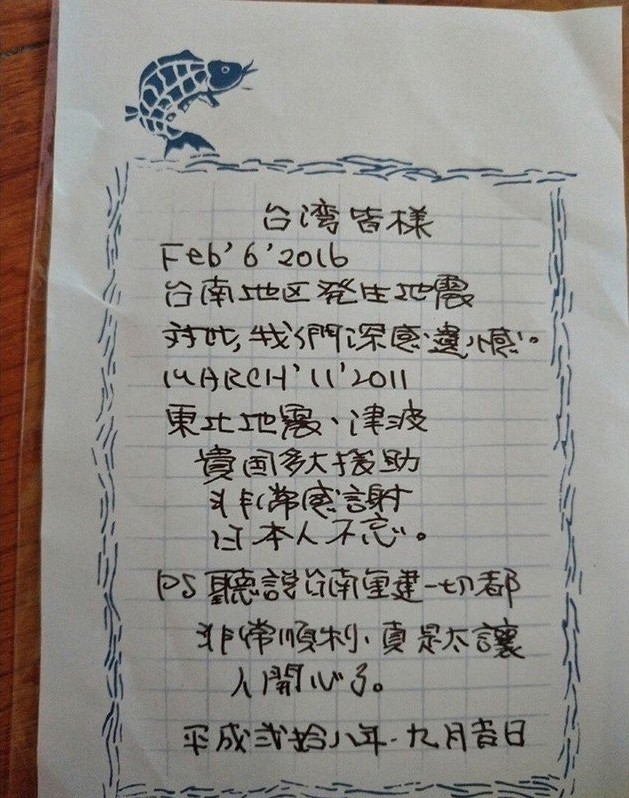 台湾皆様
Feb' 6' 2016
台南地区発生地震
対此，我們深感遺憾。
MARCH' 11' 2011
東北地震、津波
貴国多大援助
非常感謝
日本人不忘。
PS 聽説台南重建一切都
非常順利、真是太讓
人開心了。
平成弐拾八年.九月吉日